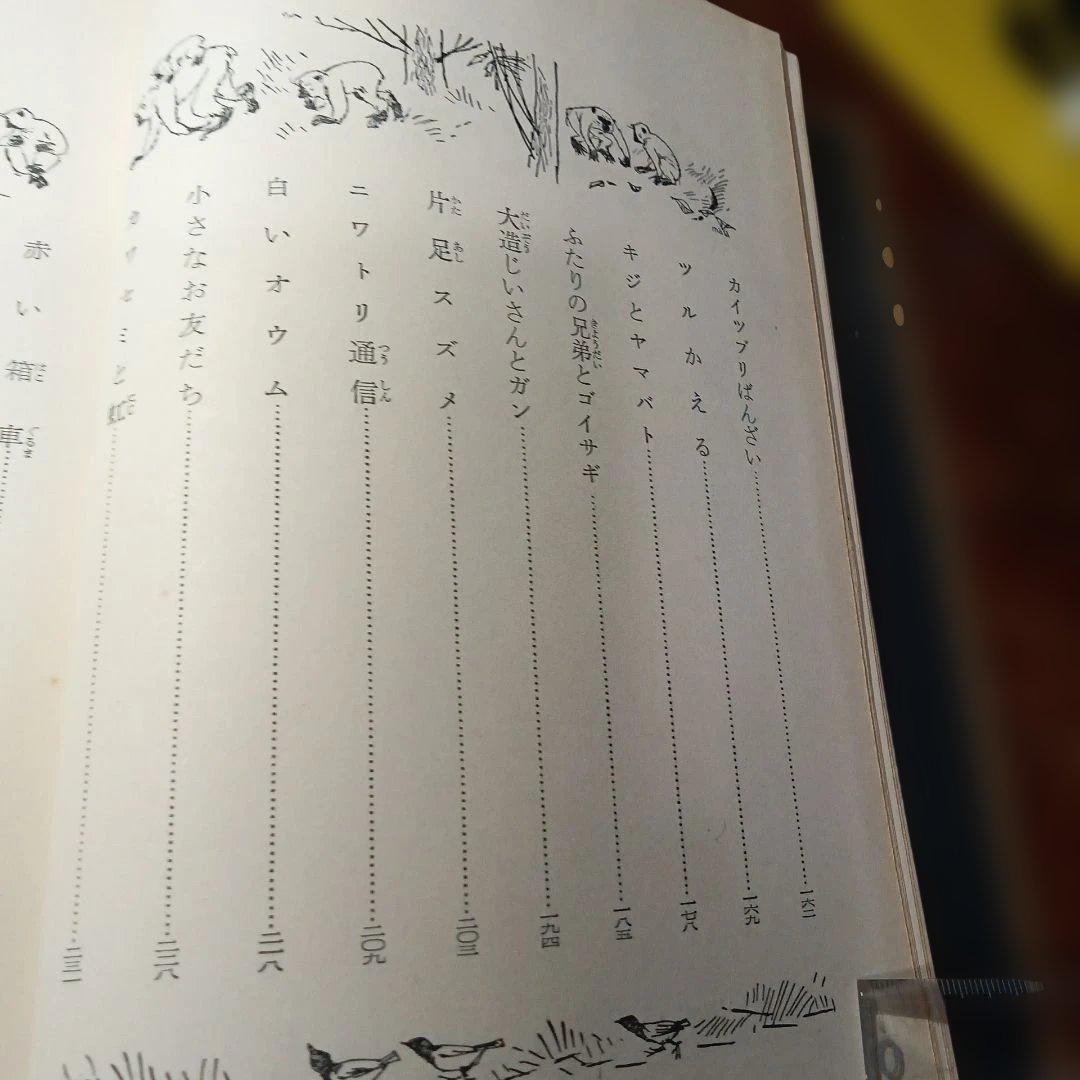 カイツブリばんざい……一六二
ツルかえる……一六九
キジとヤマバト……一七八
ふたりの兄弟とゴイサギ……一八五
大造じいさんとガン……一九四
片足スズメ……二〇三
ニワトリ通信……二〇九
白いオウム……二一八
小さなお友だち……二二八
と虹……二三一
赤い箱車